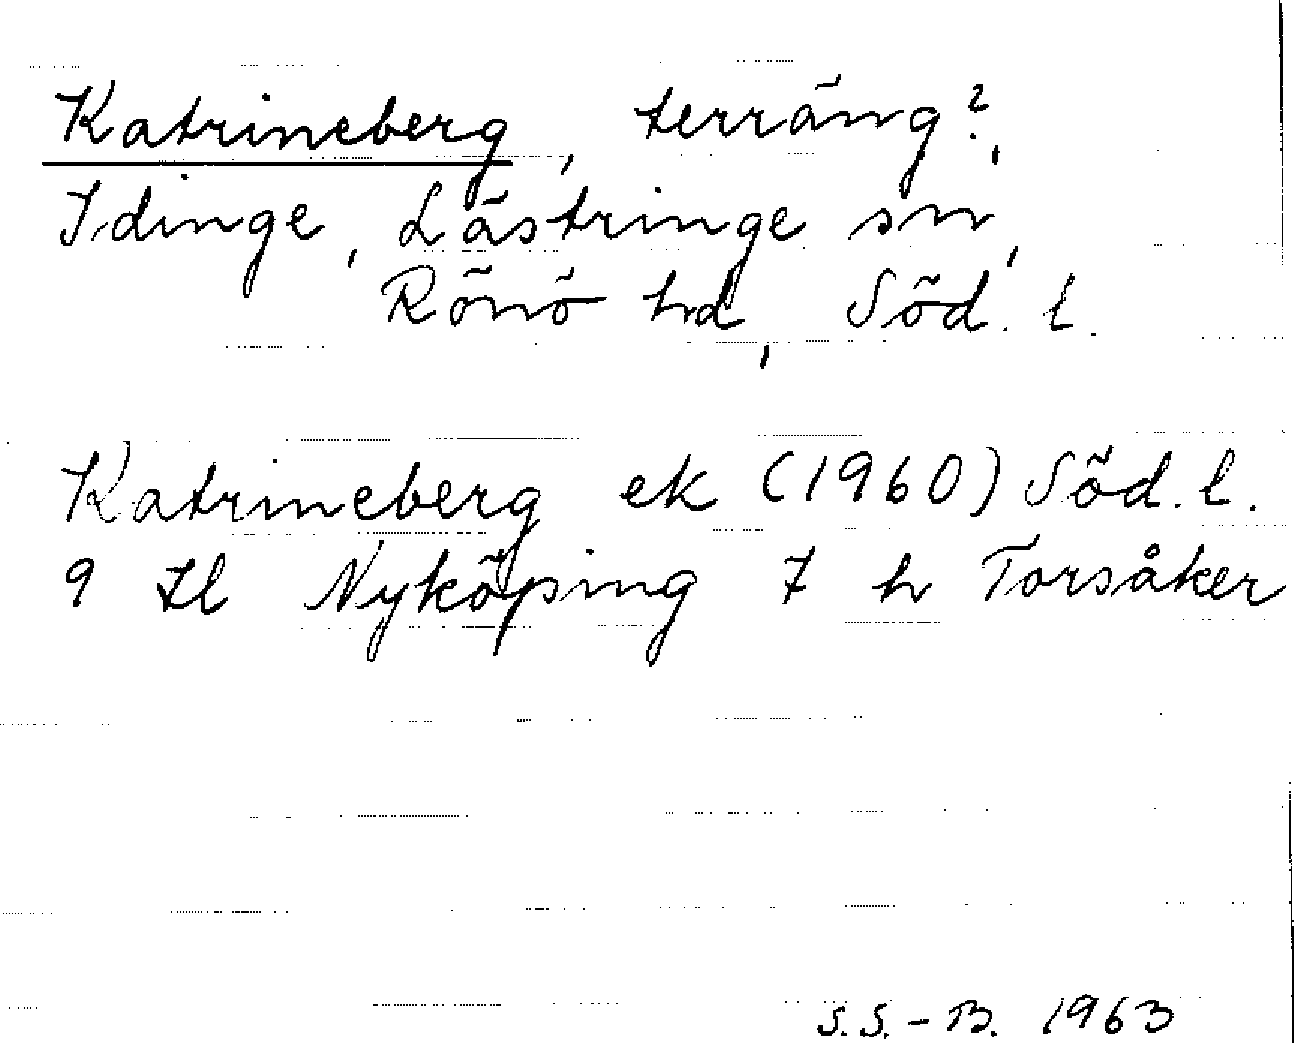 Katrineberg, terräng?,
Idinge, Lästringe sn,
Rönö hd, Söd. l.
Katrineberg ek (1960) Söd. l.
9 Hl Nyköping 7 h Torsåker
S.S.-B. 1963